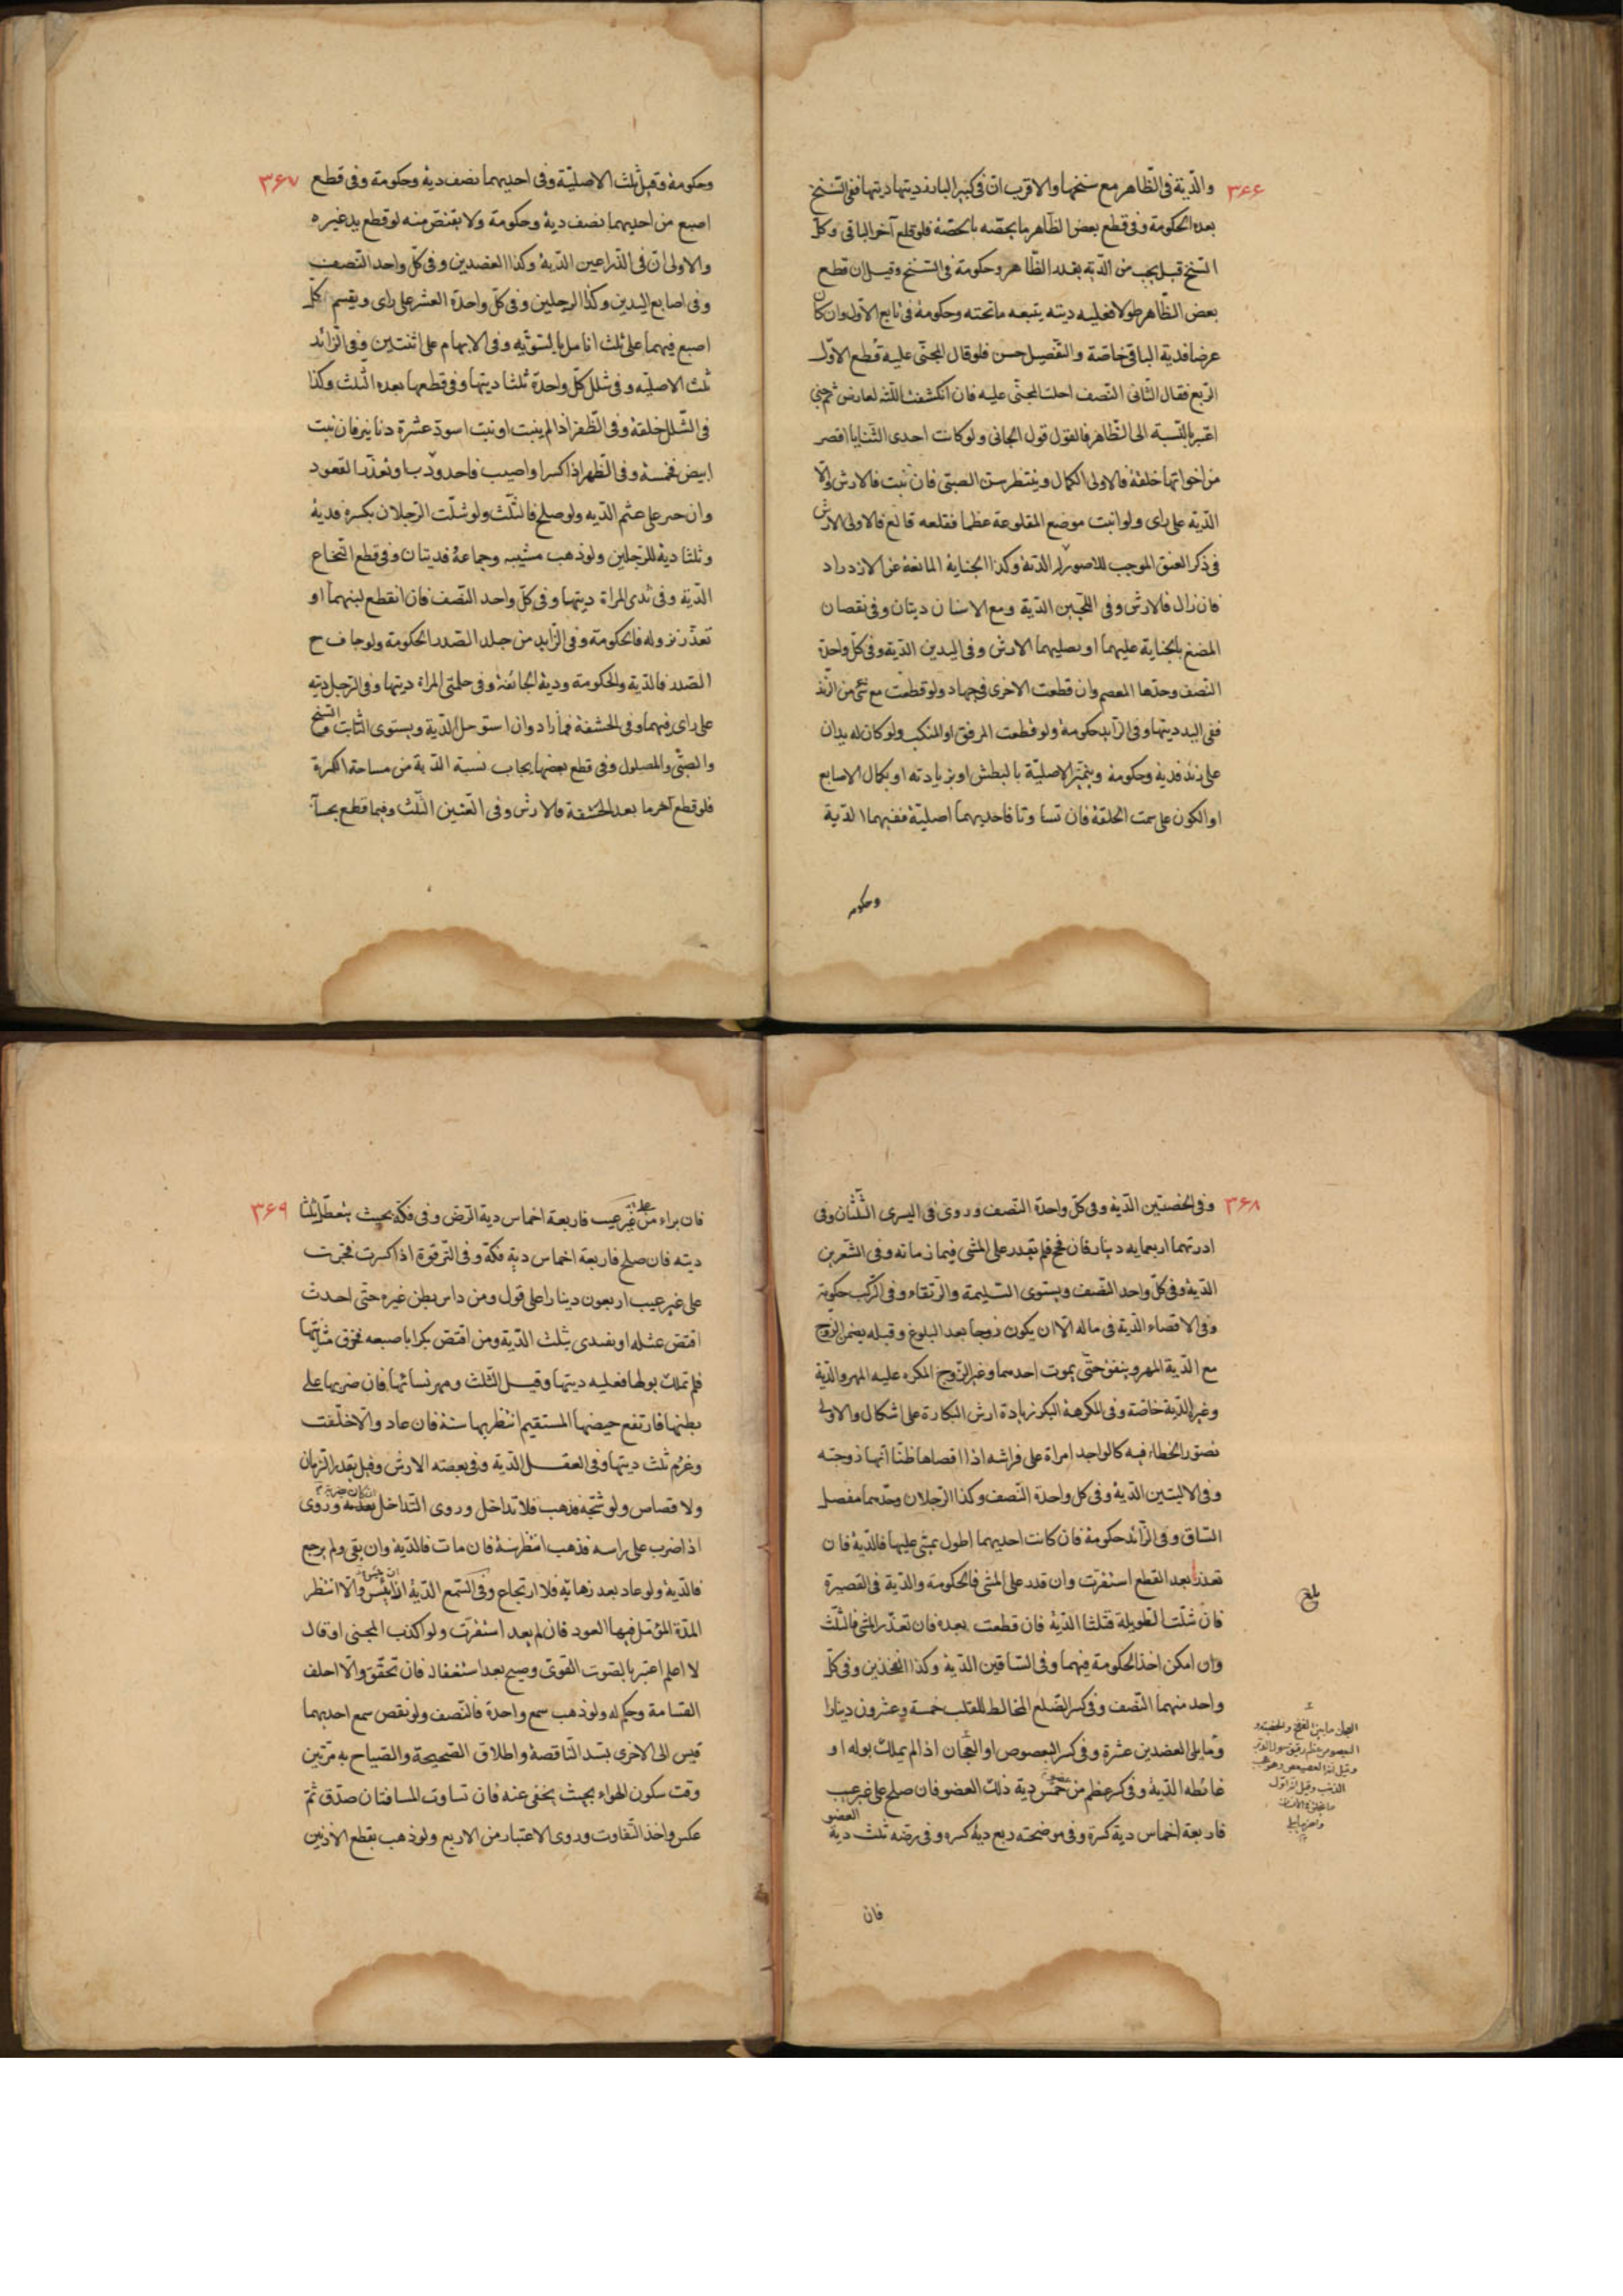 ۳۶۶
والدّية فى الظّاهر مع سنخها والاقرب انّ فى كبير البادية ديتها ففى السّنخ
بعده الحكومة وفى قطع بعض الظّاهر ما يخصّه بالحصّة فلو قلع آخر الباقى وكلّ
السّنخ قيل يجب من الدّية بقدر الظّاهر وحكومة فى السّنخ وقيل ان قطع
بعض الظّاهر طولا فعليه ديته يتبعه ماتحته وحكومة فى تابع الاوّل وان كان
عرضا فدية الباقى خاصّة والتّفصيل حسن فلو قال المجنّى عليه قطع الاوّل
الرّبع فقال الثّانى النّصف احلف المجنّى عليه فان انكشفت اللّثه لعارض ثم جنى
اعتبر بالنّسبة الى الظّاهر فالقول قول الجانى ولو كانت احدى الثّنايا اقصر
من اخواتها خلقة فالاولى الكمال وينتظر سنّ الصبىّ فان نبت فالارش والّا
الدّية على راى ولو انبت موضع المقلوعة عظما فقلعه قالع فالاولى الارش
فى ذكر العنق الموجب للاصور الدّية وكذا الجناية المانعة عن الازدراد
فان زال فالارش وفى اللّحيين الدّية ومع الاسنان ديتان وفى نقصان
المضغ بالجناية عليهما او بصليهما الارش وفى اليدين الدّية وفى كلّ واحدة
النّصف وحدّها المعصم وان قطعت الاخرى فى جهاد ولو قطعت مع شئ من الزّند
ففى اليد ديتها وفى الزّايد حكومة ولو قطعت المرفق او المنكب ولو كان له يدان
على زند فدية وحكومة ويتميّز الاصليّة بالبطش او بزيادته او بكمال الاصابع
او الكون على سمت الخلقة فان تساوتا فاحديهما اصليّة ففيهما الدّية
وحكومه
۳۶۷
وحكومة وقيل ثلث الاصليّة وفى احديهما نصف دية وحكومة وفى قطع
اصبع من احديهما نصف دية وحكومة ولا يقتصّ منه لو قطع يد غيره
والاولى انّ فى الذّراعين الدّية وكذا العضدين وفى كلّ واحد النّصف
وفى اصابع اليدين وكذا الرجلين وفى كلّ واحدة العشر على راى ويقسم كلّ
اصبع فيهما على ثلث انامل بالسّويّه وفى الابهام على اثنتين وفى الزّائد
ثلث الاصليّه وفى شلل كلّ واحدة ثلثا ديتها وفى قطعها بعده الثّلث وكذا
فى الشّلل خلقة وفى الظّفر اذا لم ينبت او نبت اسود عشرة دنانير فان نبت
ابيض فخمسة وفى الظّهر اذا كسر او اصيب فاحدودب او تعذّر القعود
وان جبر على عثم الدّيه ولو صلح فالثّلث ولو شلّت الرّجلان بكسره فدية
وثلثا دية للرّجلين ولو ذهب مشيه وجماعة فديتان وفى قطع النّخاع
الدّية وفى ثدى المراة ديتها وفى كلّ واحد النّصف فان انقطع لبنهما او
تعذّر نزوله فالحكومة وفى الزّايد من جلد الصّدر الحكومة ولو جاف ح
الصّدر فالدّية والحكومة ودية الجائفة وفى حلمتى المراة ديتها وفى الرّجل ديته
على راى فيهما وفى الحشفة فما زاد وان استوصل الدّية ويستوى الشّاب والشّيخ
والصبّى والمسلول وفى قطع بعضها بحساب نسبة الدّية من مساحة الكمرة
فلو قطع آخر ما بعد الحشفة فالارش وفى العنّين الثّلث وفيما قطع بحسابه
۳۶۸
وفى الخصيتين الدّية وفى كلّ واحدة النّصف وروى فى اليسرى الثّلثان وفى
ادرتهما اربعمايه دينار فان فحج فلم يقدر على المشى فثمانمائه وفى الشّفرين
الدّية وفى كلّ واحد النّصف ويستوى السّليمة والرّتقاء وفى الرّكب حكومة
وفى الافضاء الدّية فى ماله الّا ان يكون زوجا بعد البلوغ وقبله يضمن الزّوج
مع الدّية المهر وينفق حتّى يموت احدهما وغير الزّوج المكره عليه المهر والدّية
وغيره الدّية خاصّة وفى المكرهة البكر زيادة ارش البكارة على اشكال والاولى
تصوّر الخطاء فيه كالواجد امراة على فراشه اذا افضاها ظنّا انّها زوجته
وفى الاليتين الدّية وفى كل واحدة النّصف وكذا الرّجلان وحدّهما مفصل
السّاق وفى الزّائد حكومة فان كانت احديهما اطول يمشى عليها فالدّية فان
تعذّر بعد القطع استقرّت وان قدر على المشى فالحكومة والدّية فى القصيرة
فان شلّت الطّويلة فثلثا الدّية فان قطعت بعده فان تعذّر المشى فالثّلث
وان امكن اخذ الحكومة فيهما وفى السّاقين الدّية وكذا الفخذين وفى كلّ
واحد منهما النّصف وفى كسر الضّلع المخالط للقلب خمسة وعشرون دينارا
وممّا يلى العضدين عشرة وفى كسر البعصوص او العجان اذا لم يملك بوله او
غائطه الدّية وفى كسر عظم من عضو خمس دية ذلك العضو فان صلح على غير عيب
فاربعة اخماس دية كسره وفى موضحته ربع دية كسره وفى رضّه ثلث دية العضو
فان
بلغ
العجان ما بين الفخذ والخصية و
البعصوص عظم رقيق حول الدبر
۳۶۹
فان براء من على غير عيب فاربعة اخماس دية الرّض وفى فكّه بحيث يتعطّل ثلثا
ديته فان صلح فاربعة اخماس دية فكّه وفى التّرقوة اذا كسرت فجبرت
على غير عيب اربعون دينارا على قول ومن داس بطن غيره حتّى احدث
اقتصّ بمثله او يفدى بثلث الدّية ومن افتضّ بكرا باصبعه فخرق مثانتها
فلم تملك بولها فعليه ديتها وقيل الثّلث ومهر نسائها فان ضربها على
بطنها فارتفع حيضها المستقيم انتظر بها سنة فان عاد والّا حلّفت
وغرم ثلث ديتها وفى العقل الدّية وفى بعضه الارش وقيل بقدر الزّمان
ولا قصاص ولو شجّه فذهب فلا تداخل وروى التّداخل ان كان بضربة وروى
اذا ضرب على راسه فذهب انتظر سنة فان مات فالدّية وان بقى ولم يرجع
فالدّية ولو عاد بعد ذهابه فلا ارتجاع وفى السّمع الدّية ان ايس والّا انتظر
المدّة المؤمّل فيها العود فان لم يعد استقرّت ولو اكذب المجنى او قال
لا اعلم اعتبر بالصّوت القوىّ وصيح بعد استغفال فان تحقّق والّا احلف
القسامة وحكم له ولو ذهب سمع واحدة فالنّصف ولو نقص سمع احديهما
قيس الى الاخرى بسدّ النّاقصة واطلاق الصّحيحة والصّياح به مرّتين
وقت سكون الهواء بحيث يخفى عنه فان تساوت المسافتان صدّق ثمّ
عكس واخذ التّفاوت وروى الاعتبار من الاربع ولو ذهب بقطع الاذنين